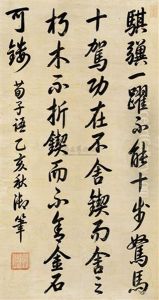 騏驥一躍不能十步駑馬
十駕功在不舍鍥而舍之
朽木不折鍥而不舍金石
可鏤 荀子語 乙亥秋御筆